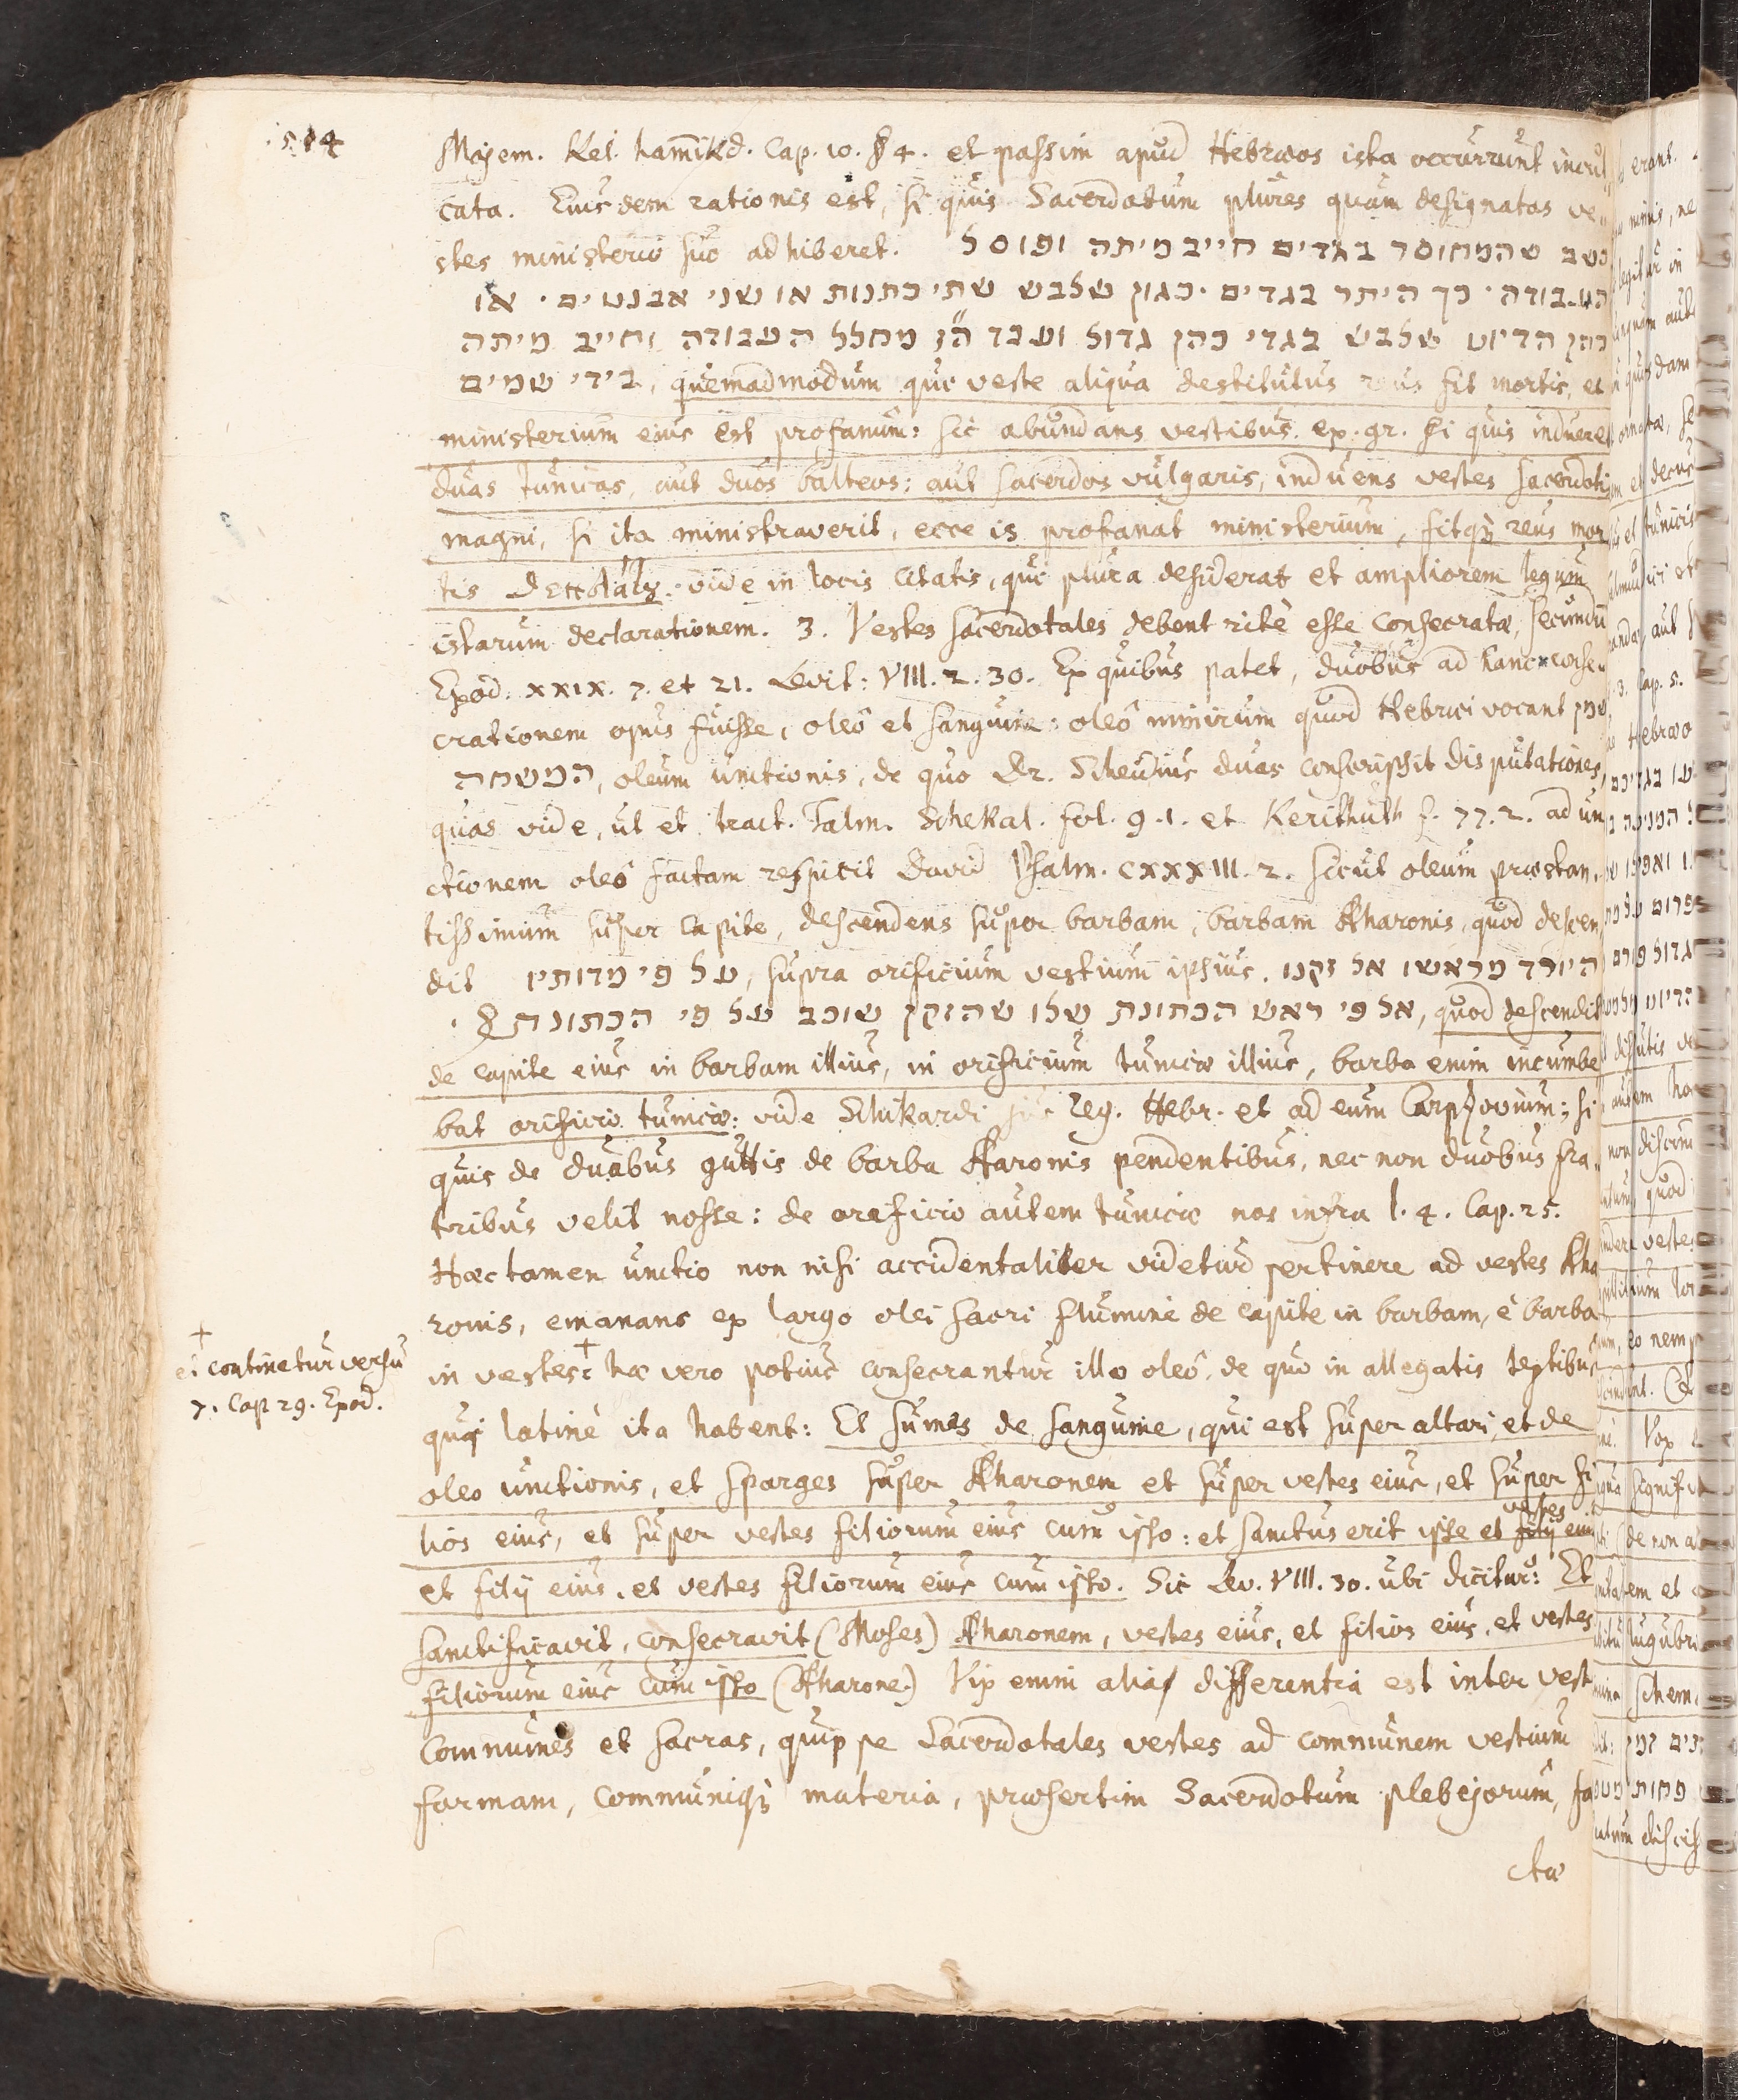 514
Majem. Kel. hamikd. Cap. 10. § 4. et passim apud Hebræos ista occurrunt incul
cata. Eiusdem rationis est, si quis Sacerdotum plures quam designatas ve
stes ministerio suo adhiberet. כשם שהמחוסר בגדים חייב מיתה ופוסל
העבודה · כך היתר בגדים · כגון שלבש שתי כתנות או שני אבנטים · או
כהן הדיוט שלבש בגדי כהן גדול ועבד ה"ז מחלל העבודה וחייב מיתה
בידי שמים, quemadmodum qui veste aliqua destitutus reus fit mortis, et
ministerium eius est profanum: sic abundans vestibus. ex. gr. si quis induere
duas tunicas, aut duos balteos: aut sacerdos vulgaris, induens vestes sacerdotis
magni, si ita ministraverit, ecce is profanat ministerium, fitq reus mor
tis vide in locis citatis, qui plura desiderat et ampliorem legum
istarum declarationem. 3. Vestes sacerdotales debent rite esse consecratæ, secundu
Exod. XXIX. 7. et 21. Levit: VIII. 2. 30. Ex quibus patet, duobus ad hanc conse
crationem opus fuisse, oleô et sanguine: oleô nimirum quod Hebræi vocant שמן
המשחה, oleum unctionis, de quo Dr. Scheuius duas conscripsit disputationes,
quas vide, ut et tract. Talm. Schekal. fol. 9. 1. et Kerithuth f. 77. 2. ad un
ctionem oleô factam respicit David Psalm. CXXXIII. 2. sicut oleum præstan
tissimum super capite, descendens super barbam, barbam Aharonis, quod descen
dit על פי מדותיו, supra orificium vestium ipsius. היורד מראשו אל זקנו
אל פי ראש הכתונת שלו שהזקן שוכב על פי הכתונת, quod descendit
de capite eius in barbam illius, in orificium tunicæ illius, barba enim incumbe
bat orificio tunicæ: vide Schikardi jus reg. Hebr. et ad eum Carpzovium; si
quis de duabus guttis de barba Aaronis pendentibus, nec non duobus fra
tribus velit nosse: de orificio autem tunicæ nos infra l. 4. Cap. 25.
Hæc tamen unctio non nisi accidentaliter videtur pertinere ad vestes Aha
ronis, emanans ex largo olei sacri flumine de capite in barbam, è barba
in vestes: hæ vero potius consecrantur illo oleô, de quo in allegatis textibus
+
ei continetur versu
7. Cap 29. Exod.
qui latinè ita habent: Et sumes de sanguine, qui est super altari, et de
oleo unctionis, et sparges super Aharonem et super vestes eius, et super fi
lios eius, et super vestes filiorum eius cum ipso: et sanctus erit ipse et vestes eius
et filij eius, et vestes filiorum eius cum ipso. Sic Lev. VIII. 30. ubi dicitur: Et
sanctificavit, consecravit (Moses) Aharonem, vestes eius, et filios eius, et vestes
filiorum eius cum ipso (Aharone.) Vix enim alia differentia est inter vest
communes et sacras, quippe Sacerdotales vestes ad communem vestium
formam, communiq materia, præsertim Sacerdotum plebejorum, fa
ctæ